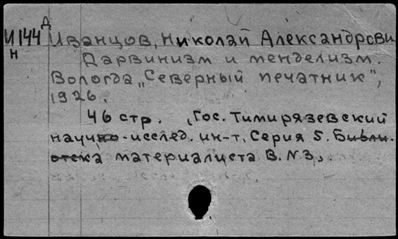 Д
И144 Иванцов, Николай Александрови
Н Дарвинизм и менделизм.
Вологда, „Северный печатник",
1926.
46 стр. (Гос. Тимирязевский
научно-исслед. ин-т. Серия 5. Библи-
отека материалиста В. №3).